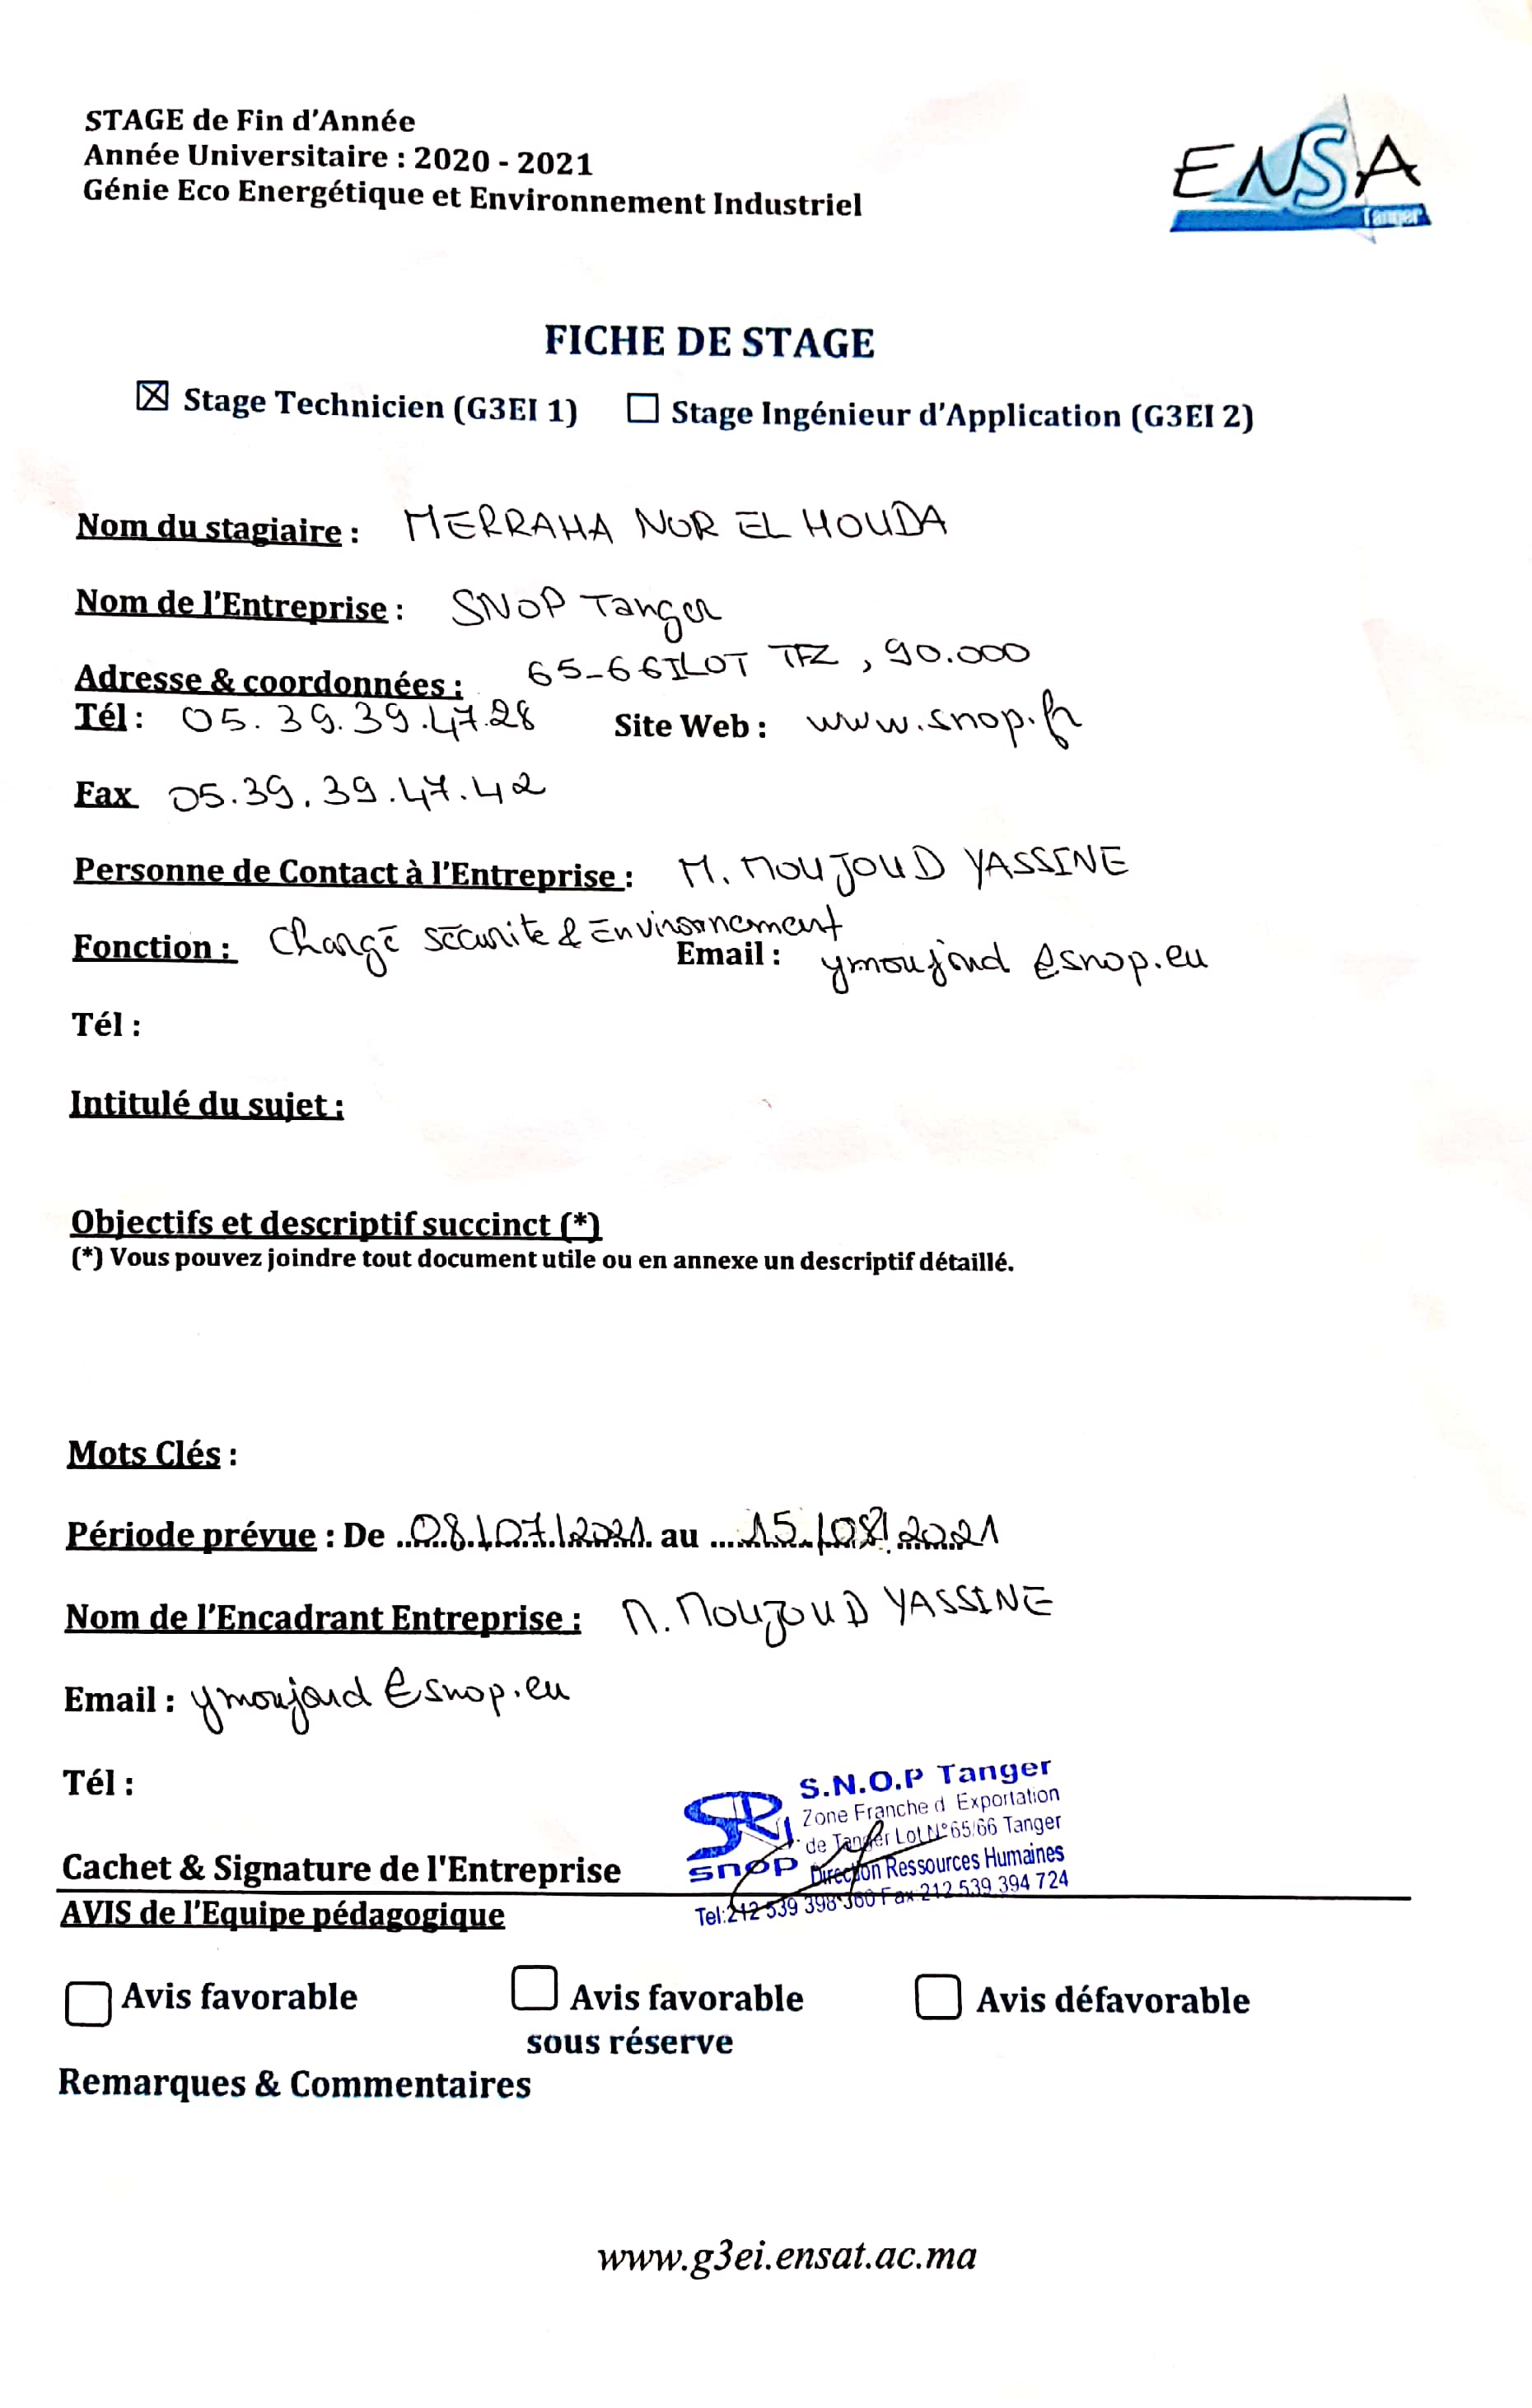 STAGE de Fin d'Année
Année Universitaire : 2020 - 2021
Génie Eco Energétique et Environnement Industriel
ENSA
Tanger
FICHE DE STAGE
☒ Stage Technicien (G3EI 1) ☐ Stage Ingénieur d'Application (G3EI 2)
Nom du stagiaire : MERRAHA NOR EL HOUDA
Nom de l'Entreprise : SNOP Tanger
Adresse & coordonnées : 65-66 ILOT TFZ, 90.000
Tél : 05.39.39.47.28 Site Web : www.snop.fr
Fax 05.39.39.47.42
Personne de Contact à l'Entreprise : M. MOUJOUD YASSINE
Fonction : Chargé Sécurité & Environnement Email : ymoujoud@snop.eu
Tél :
Intitulé du sujet :
Objectifs et descriptif succinct (*)
(*) Vous pouvez joindre tout document utile ou en annexe un descriptif détaillé.
Mots Clés :
Période prévue : De 08/07/2021 au 15/08/2021
Nom de l'Encadrant Entreprise : M. MOUJOUD YASSINE
Email : ymoujoud@snop.eu
Tél :
S.N.O.P Tanger
Zone Franche d Exportation
de Tanger Lot N°65/66 Tanger
snop Direction Ressources Humaines
Tel:212 539 398 360 Fax 212 539 394 724
Cachet & Signature de l'Entreprise
AVIS de l'Equipe pédagogique
☐ Avis favorable ☐ Avis favorable ☐ Avis défavorable
sous réserve
Remarques & Commentaires
www.g3ei.ensat.ac.ma